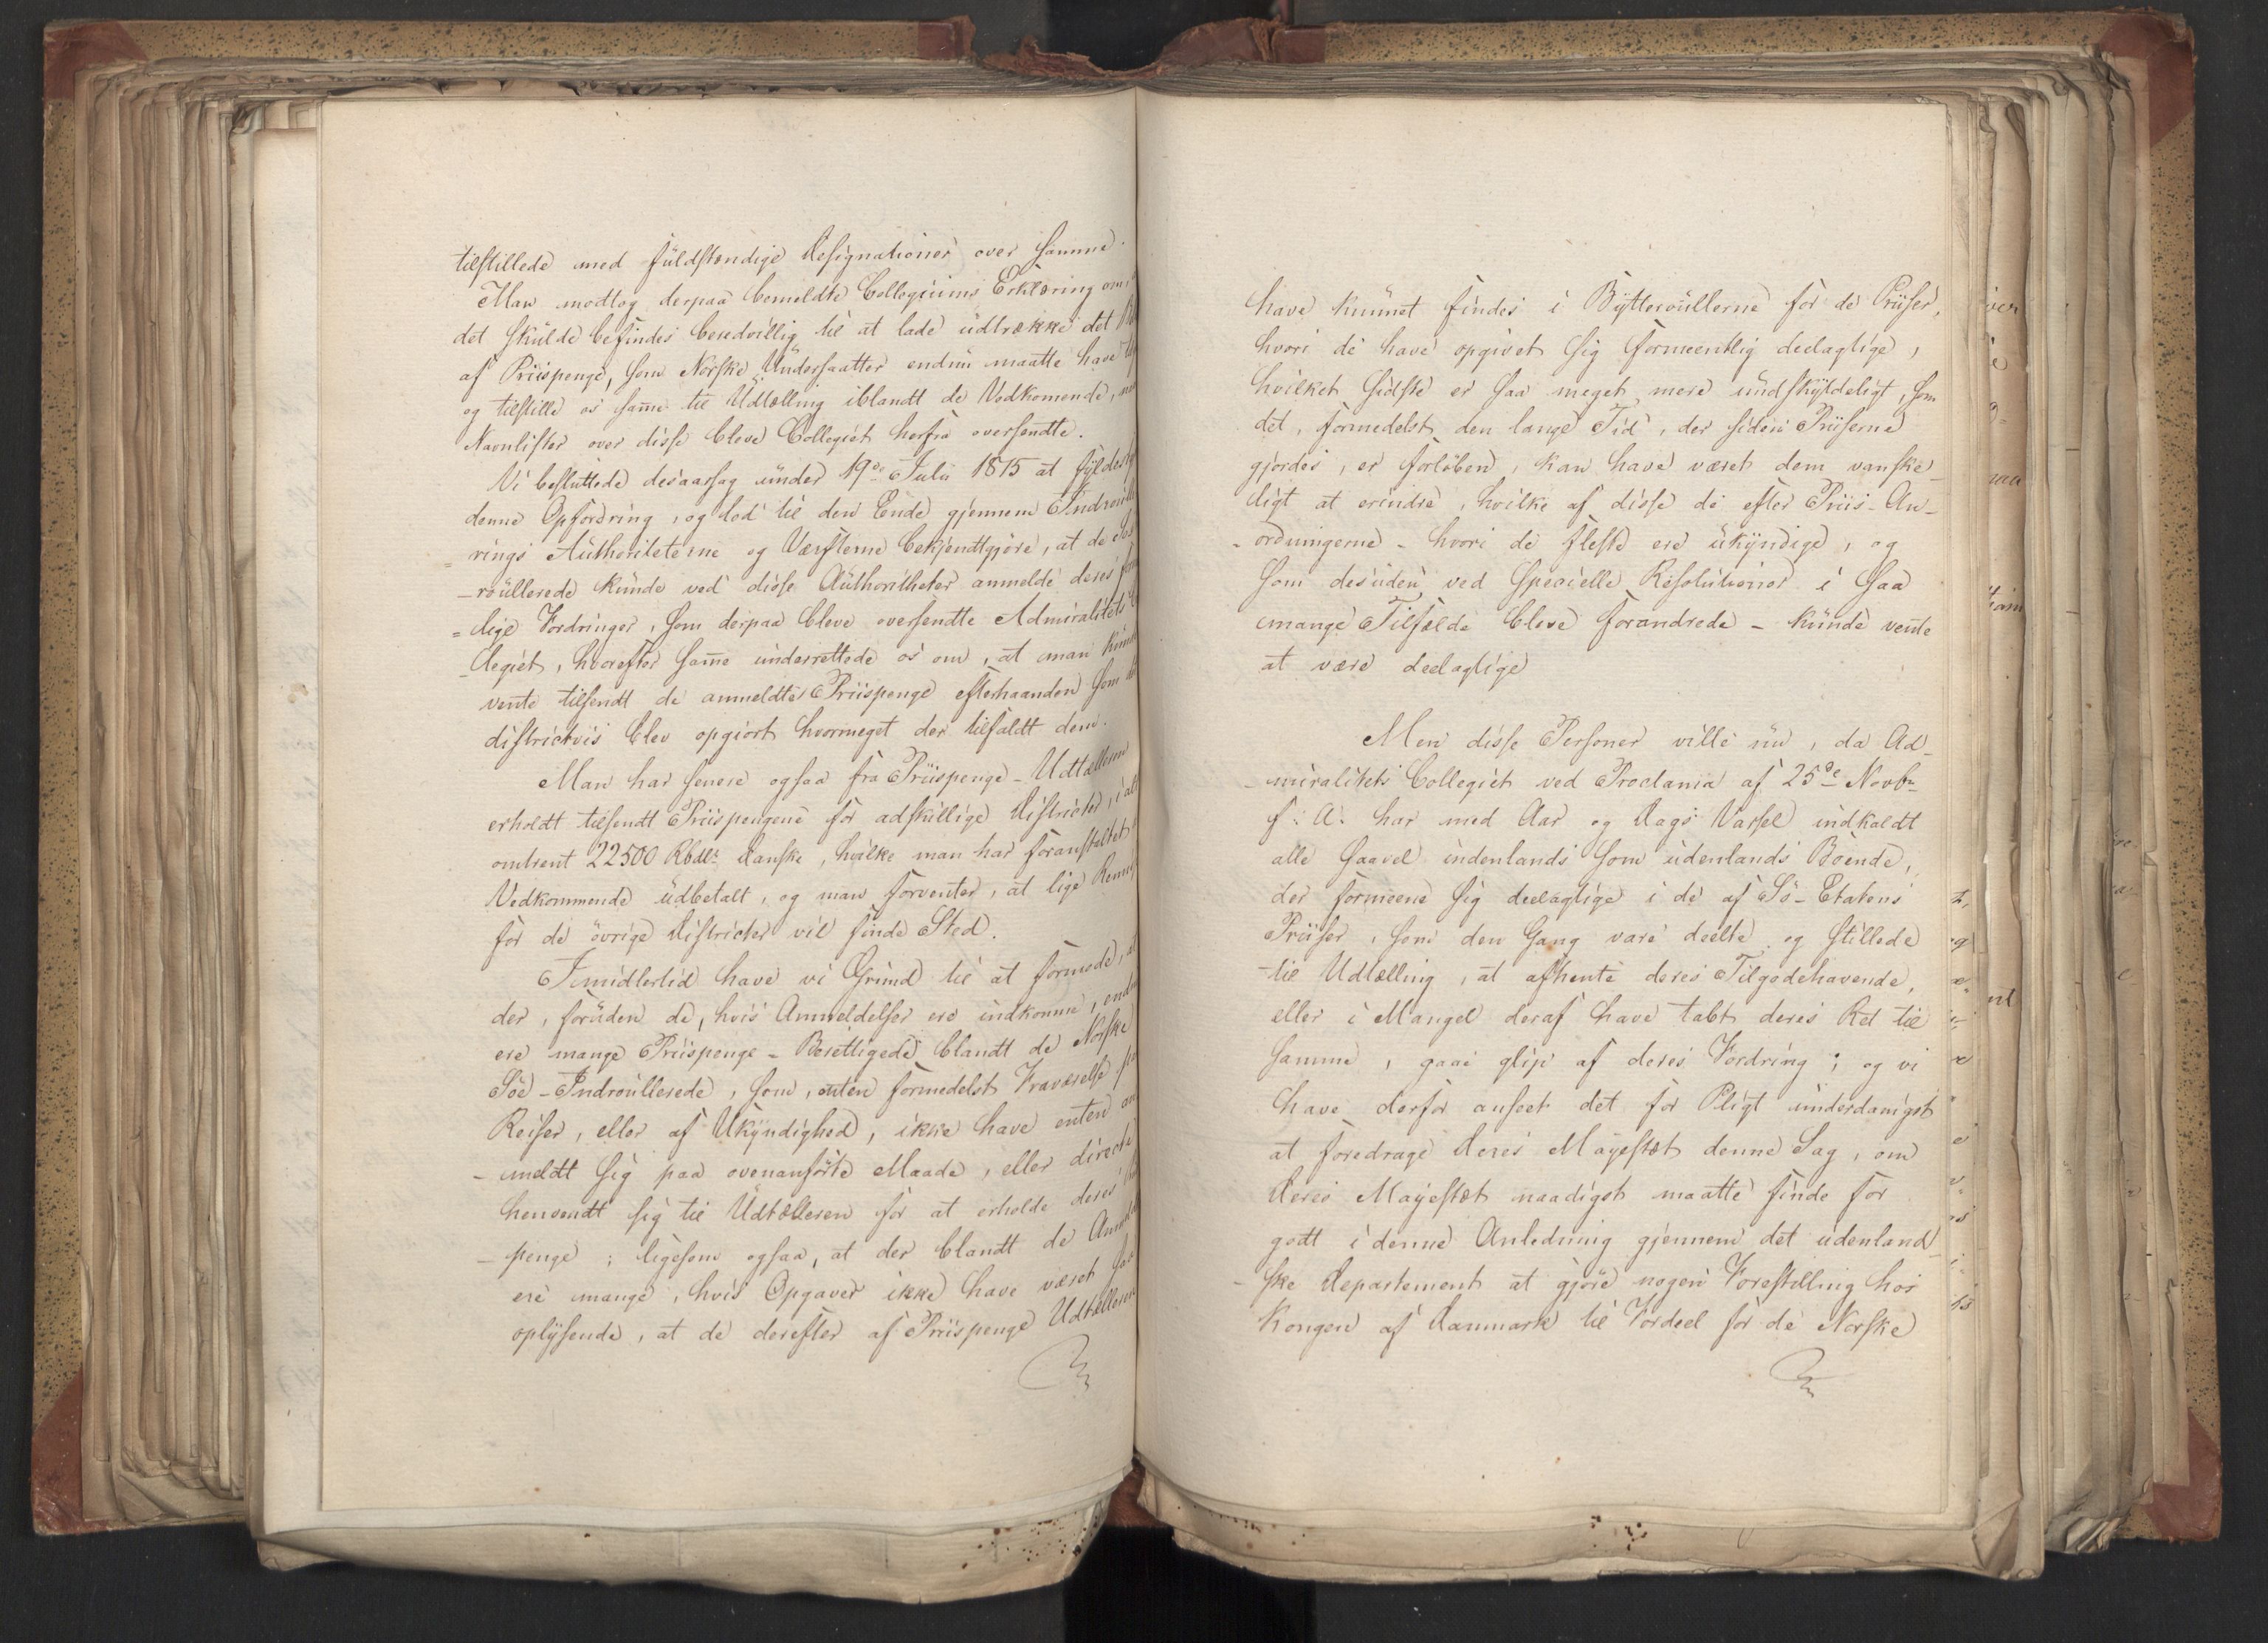 tilstillede med füldstændige Designationer over samme.
Man modtog derpaa bemeldte Collegiums Erklæring om,
det skulde befindes beredvillig til at lade üdtrække det
af Priispenge, som Norske Undersaatter endnu maatte have
og tilstille os samme til Udtælling iblandt de Vedkomende,
Navnlister over disse bleve Collegiet herfra oversendte.
Vi besluttede desaarsag ünder 19de Julii 1815 at
denne Opfordring, og lod til den Ende gjennem
rings Authoriteterne og Værfterne bekjendtgjöre, at de
-roüllerede künde ved disse Aüthoritheter anmelde deres
=lige Fordringer, som derpaa bleve oversendte Admiralitets
-legiet, hvorefter samme ünderrettede os om, at man
vente tilsendt de anmeldte Priispenge efterhaanden som
districtviis blev opgiort hvormeget der tilfaldt dem.
Man har senere ogsaa fra Priispenge-Udtælleren
erholdt tilsendt Priispengene for adskillige Districter,
omtrent 22500 Rbdlr Danske, hvilke man har foranstaltet
Vedkommende üdbetalt, og man forventer, at lige
for de övrige Districter vil finde Sted.
Imidlertid have vi Grund til at formode,
der, foruden de, hvis Anmeldelser ere indkomne,
ere mange Priispenge-Berettigede blandt de Norske
Söe-Indroullerede, som, enten formedelst Fraværelse
Reiser, eller af Ukyndighed, ikke have enten
-meldt sig paa ovenanförte Maade, eller directe
henvendt sig til Udtælleren for at erholde deres
-penge; ligesom ogsaa, at der blandt de
ere mange, hvis Opgaver ikke have været
oplysende, at de derefter af Priispenge Udtælleren
have kunnet findes i Bytteroullerne for de Priser,
hvori de have opgivet sig formeentlig deelagtige,
hvilket sidste er saa meget mere undskyldeligt, som
det, formedelst den lange Tid, der siden Priserne
gjordes, er forlöben, kan have været dem vanske-
ligt at erindre, hvilke af disse de efter Priis-An-
-ordningerne - hvori de fleste ere ukyndige, og
som desuden ved specielle Resolutioner i saa
mange Tilfælde bleve forandrede - künde vente
at være deelagtige
Men disse Personer ville nu, da Ad-
-miralitets Collegiet ved Proclama af 25de Novbr
f: A: har med Aar og Dags Varsel indkaldt
alle saavel indenlands som udenlands Boende,
der formeene sig deelagtige i de af Sö-Etatens
Priser, som den Gang vare deelte og stillede
-til Udtælling, at afhente deres Tilgodehavende,
eller i Mangel deraf have tabt deres Ret til
samme, gaae glip af deres Fordring; og vi
have derfor anseet det for Pligt underdanigst
at foredrage Deres Majestæt denne Sag, om
Deres Majestæt naadigst maatte finde for
godt i denne Anledning gjennem det udenland-
-ske Departement at gjöre nogen Forestilling hos
Kongen af Danmark til Fordeel for de Norske